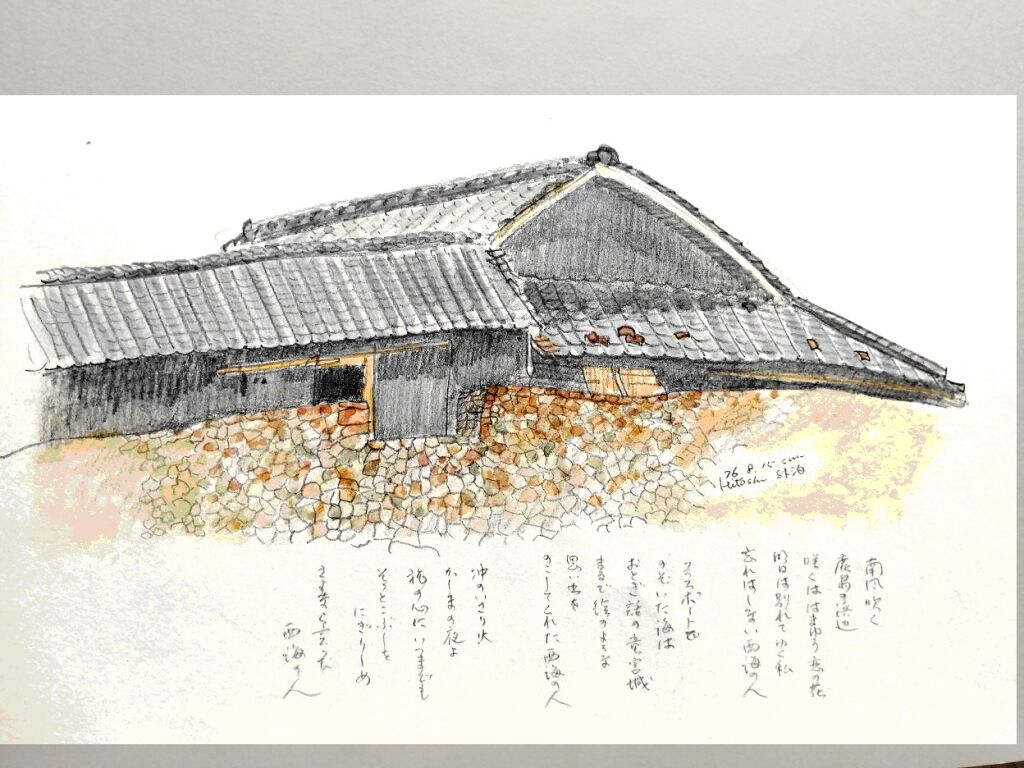 '76. 8. 15 sun
Hitoshi 外泊
南風吹く
鹿島の浜辺
咲くははまゆう恋の花
明日は別れてゆく私
忘れはしない西海の人
グラスボートで
のぞいた海は
おとぎ話の竜宮城
まるで絵のような
思い出を
のこしてくれた西海の人
沖のいさり火
かしまの夜よ
旅の心にいつまでも
そっとこぶしを
にぎりしめ
言った
西海の人